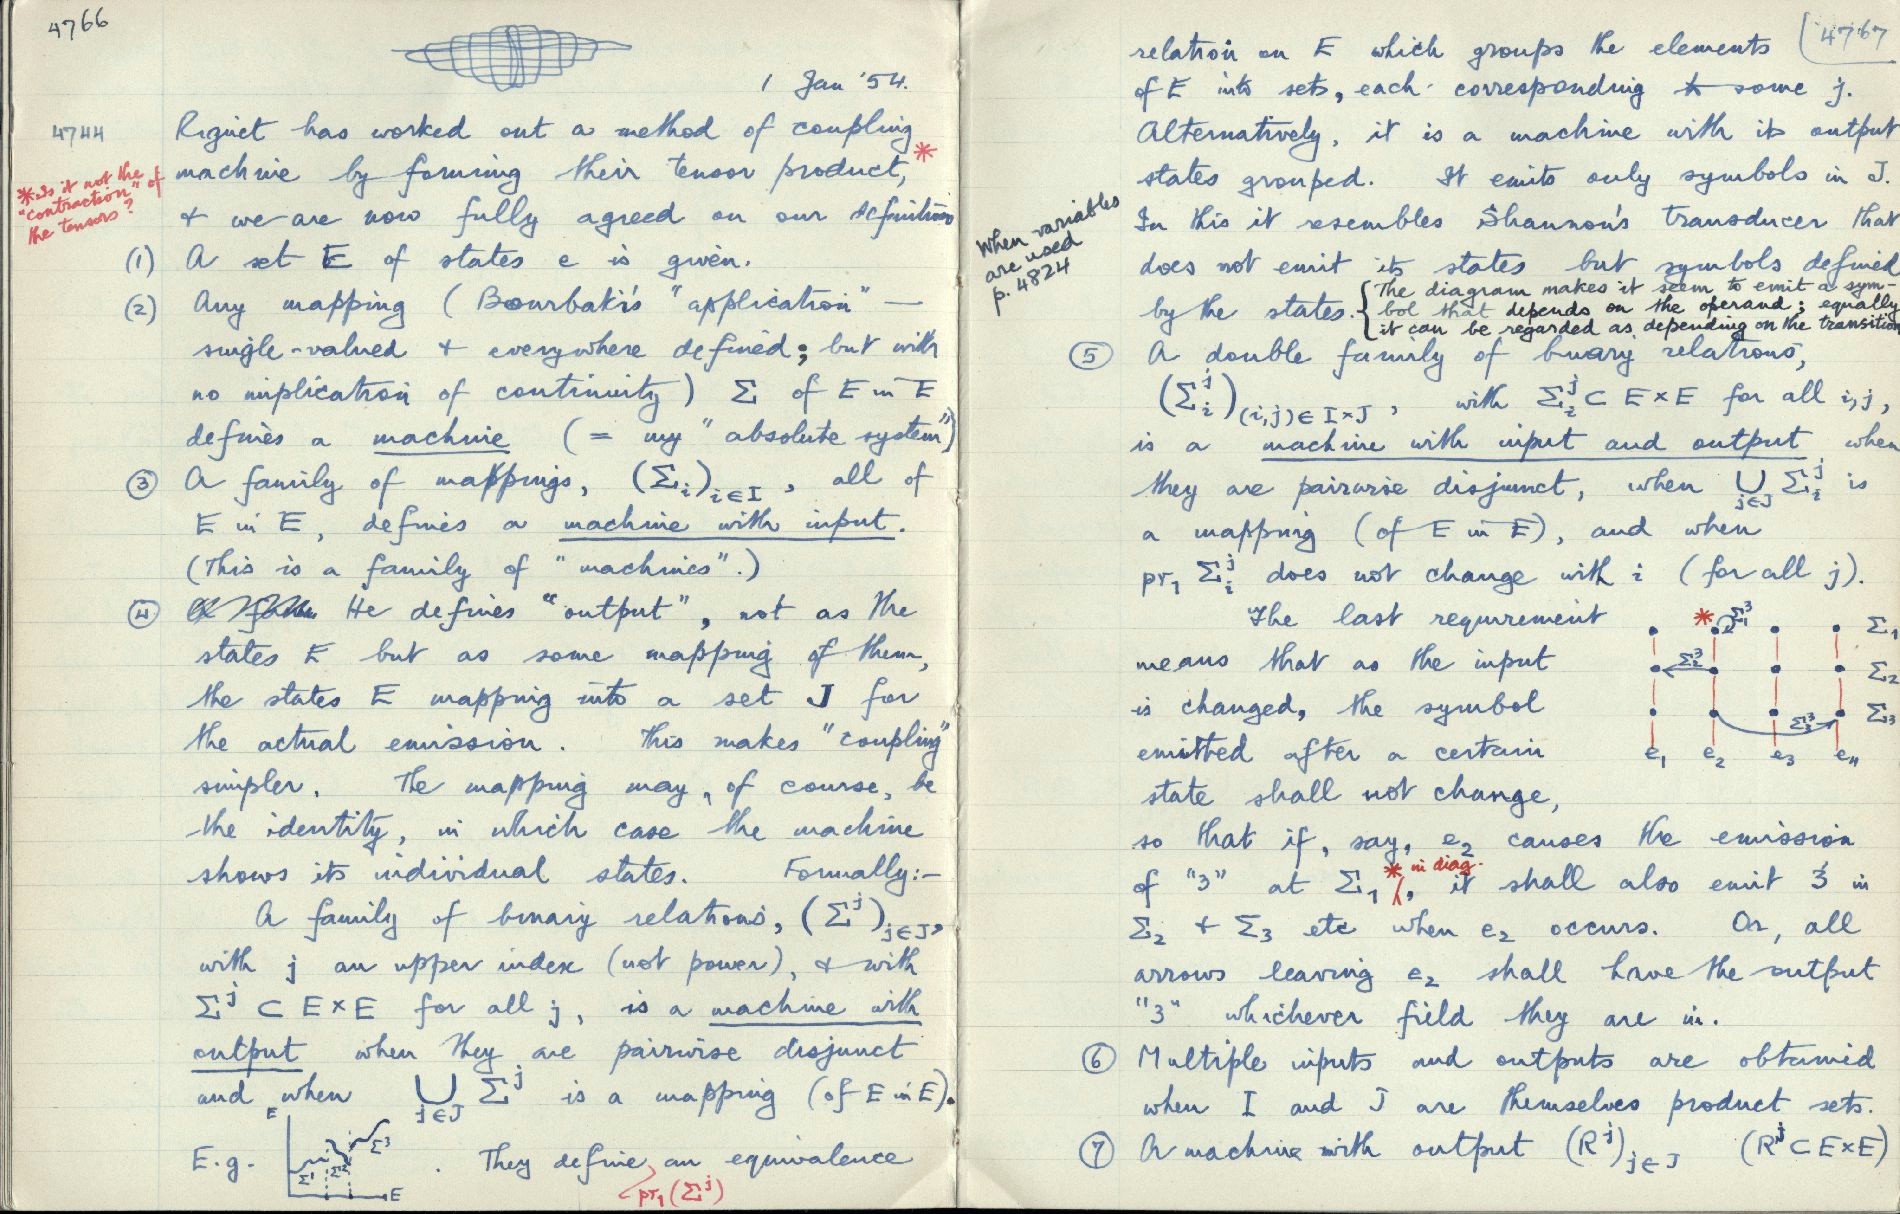 4766
1 Jan '54.
4744
Riguet has worked out a method of coupling
machine by forming their tensor product,*
& we are now fully agreed on our definitions
* Is it not the
"contraction" of
the tensors?
(1) A set E of states e is given.
(2) Any mapping (Bourbaki's "application" —
single-valued & everywhere defined; but with
no implication of continuity) Σ of E in E
defines a machine (= my "absolute system")
(3) A family of mappings, (Σi)i∈I, all of
E in E, defines a machine with input.
(This is a family of "machines".)
(4) He defines "output", not as the
states E but as some mapping of them,
the states E mapping into a set J for
the actual emission. This makes "coupling"
simpler. The mapping may, of course, be
the identity, in which case the machine
shows its individual states. Formally:—
A family of binary relations, (Σ^j)j∈J,
with j an upper index (not power), & with
Σ^j ⊂ E×E for all j, is a machine with
output when they are pairwise disjunct
and when ∪j∈J Σ^j is a mapping (of E in E).
E.g. E Σ¹ Σ² Σ³ E . They define an equivalence
pr₁(Σ^j)
4767
relation on E which groups the elements
of E into sets, each corresponding to some j.
Alternatively, it is a machine with its output
states grouped. It emits only symbols in J.
In this it resembles Shannon's transducer that
does not emit its states but symbols defined
by the states.
{The diagram makes it seem to emit a sym-
bol that depends on the operand; equally
it can be regarded as depending on the transition
When variables
are used
p. 4824
(5) A double family of binary relations,
(Σi^j)(i,j)∈I×J, with Σi^j ⊂ E×E for all i,j,
is a machine with input and output when
they are pairwise disjunct, when ∪j∈J Σi^j is
a mapping (of E in E), and when
pr₁ Σi^j does not change with i (for all j).
The last requirement
means that as the input
is changed, the symbol
emitted after a certain
state shall not change,
* Σ₁³ Σ₁
Σ₂³ Σ₂
Σ₃³ Σ₃
e₁ e₂ e₃ e₄
so that if, say, e₂ causes the emission
* in diag.
of "3" at Σ₁, it shall also emit 3 in
Σ₂ & Σ₃ etc when e₂ occurs. Or, all
arrows leaving e₂ shall have the output
"3" whichever field they are in.
(6) Multiple inputs and outputs are obtained
when I and J are themselves product sets.
(7) A machine with output (R^j)j∈J (R^j ⊂ E×E)